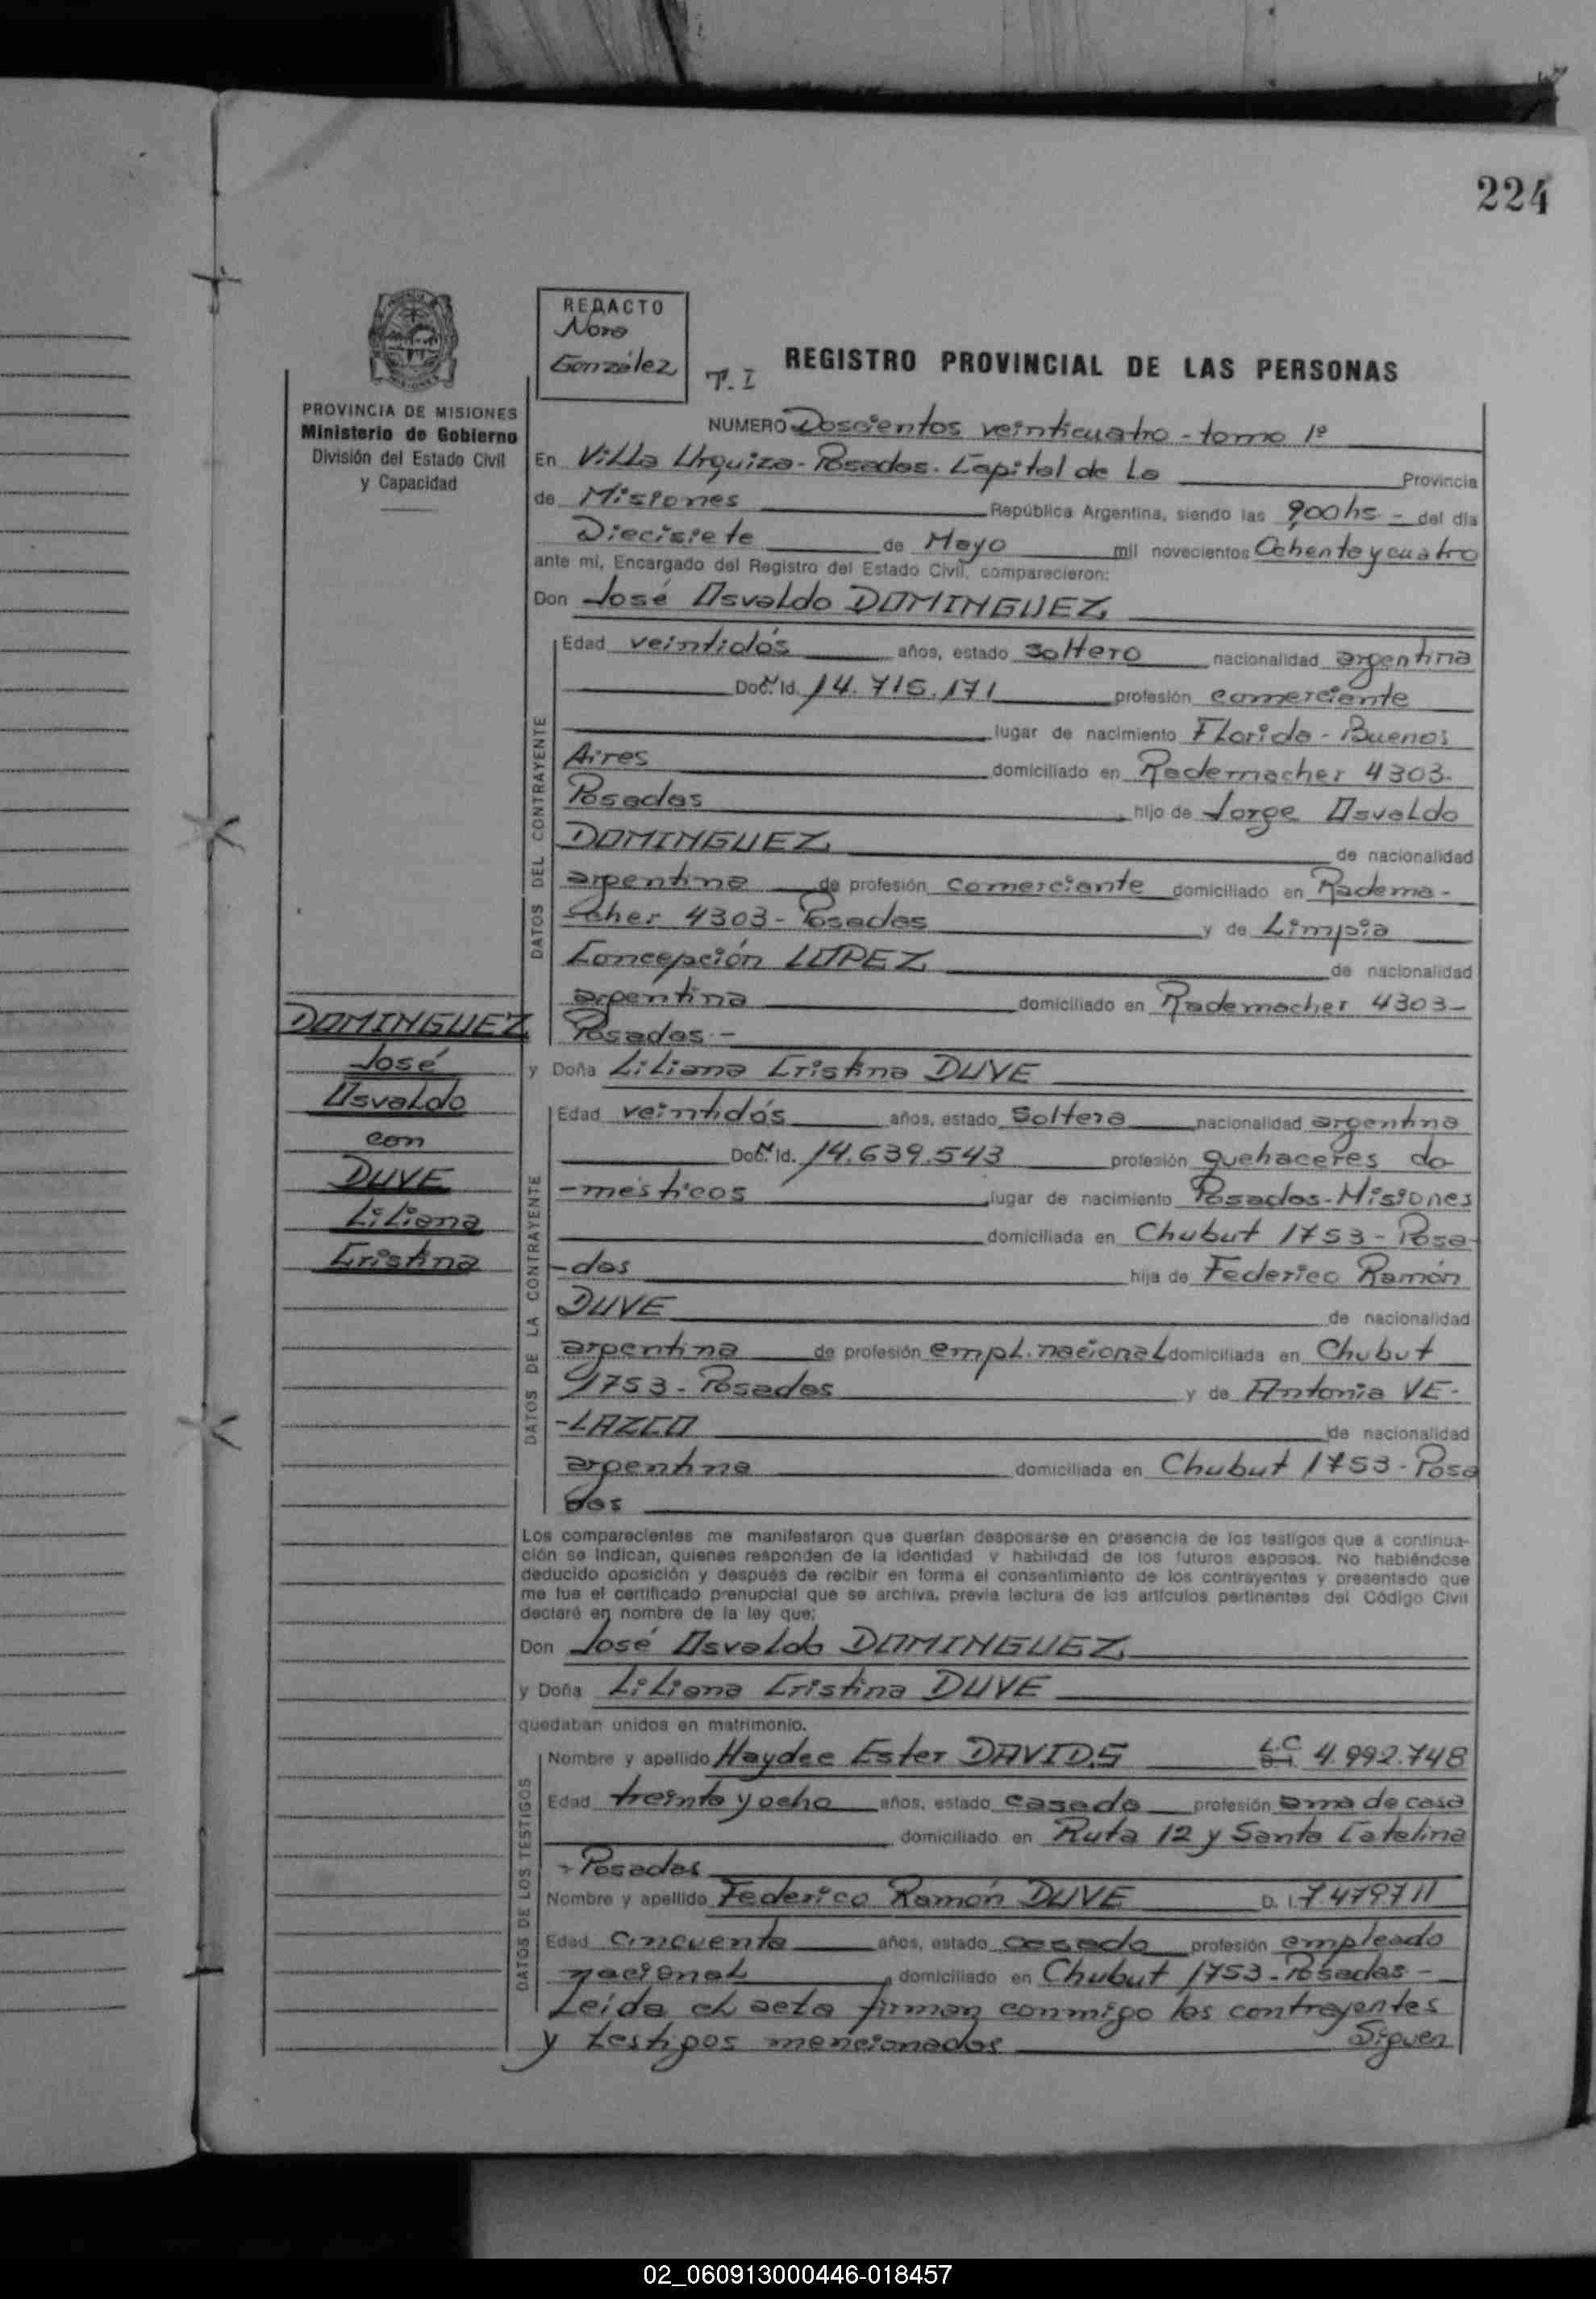 224
REDACTO
Nora
González
T. I
REGISTRO PROVINCIAL DE LAS PERSONAS
PROVINCIA DE MISIONES
Ministerio de Gobierno
División del Estado Civil
y Capacidad
NUMERO Doscientos veinticuatro - tomo 1º
En Villa Urquiza - Posadas. Capital de La Provincia
de Misiones República Argentina, siendo las 900 hs - del día
Diecisiete de Mayo mil novecientos Ochenta y cuatro
ante mí, Encargado del Registro del Estado Civil, comparecieron:
Don José Osvaldo DOMINGUEZ
Edad veintidós años, estado soltero nacionalidad argentina
Doc. Id. 14.715.171 profesión comerciante
lugar de nacimiento Florida - Buenos
Aires domiciliado en Rademacher 4303.
Posadas hijo de Jorge Osvaldo
DOMINGUEZ de nacionalidad
argentina de profesión comerciante domiciliado en Radema-
cher 4303 - Posadas y de Limpia
Concepción LOPEZ de nacionalidad
argentina domiciliado en Rademacher 4303 -
Posadas -
DOMINGUEZ
José
Osvaldo
con
DUVE
Liliana
Cristina
y Doña Liliana Cristina DUVE
Edad veintidós años, estado Soltera nacionalidad argentina
Doc. Id. 14.639.543 profesión quehaceres do-
-mésticos lugar de nacimiento Posadas - Misiones
domiciliada en Chubut 1753 - Posa-
-das hija de Federico Ramón
DUVE de nacionalidad
argentina de profesión empl. nacional domiciliada en Chubut
1753 - Posadas y de Antonia VE-
-LAZCO de nacionalidad
argentina domiciliada en Chubut 1753 - Posa
das
DATOS DEL CONTRAYENTE
DATOS DE LA CONTRAYENTE
Los comparecientes me manifestaron que querían desposarse en presencia de los testigos que a continua-
ción se indican, quienes responden de la identidad y habilidad de los futuros esposos. No habiéndose
deducido oposición y después de recibir en forma el consentimiento de los contrayentes y presentado que
me fue el certificado prenupcial que se archiva, previa lectura de los artículos pertinentes del Código Civil
declaré en nombre de la ley que:
Don José Osvaldo DOMINGUEZ
y Doña Liliana Cristina DUVE
quedaban unidos en matrimonio.
DATOS DE LOS TESTIGOS
Nombre y apellido Haydee Ester DAVIDS L.C 4.992.748
Edad treinta y ocho años, estado casada profesión ama de casa
domiciliado en Ruta 12 y Santa Catalina
- Posadas
Nombre y apellido Federico Ramón DUVE D. I. 7.479711
Edad cincuenta años, estado casado profesión empleado
nacional domiciliado en Chubut 1753 - Posadas -
Leída el acta firman conmigo los contrayentes
y testigos mencionados Siguen
02_060913000446-018457